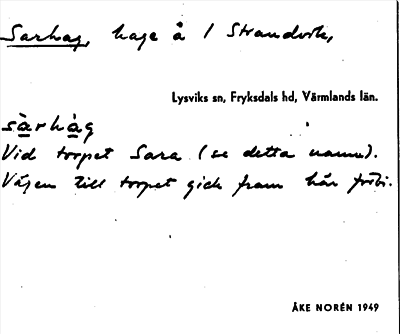 Sarhag, hage å 1 Strandvik,
Lysviks sn, Fryksdals hd, Värmlands län.
sàrhàg
Vid torpet Sara (se detta namn).
Vägen till torpet gick fram här förbi.
ÅKE NORÉN 1949